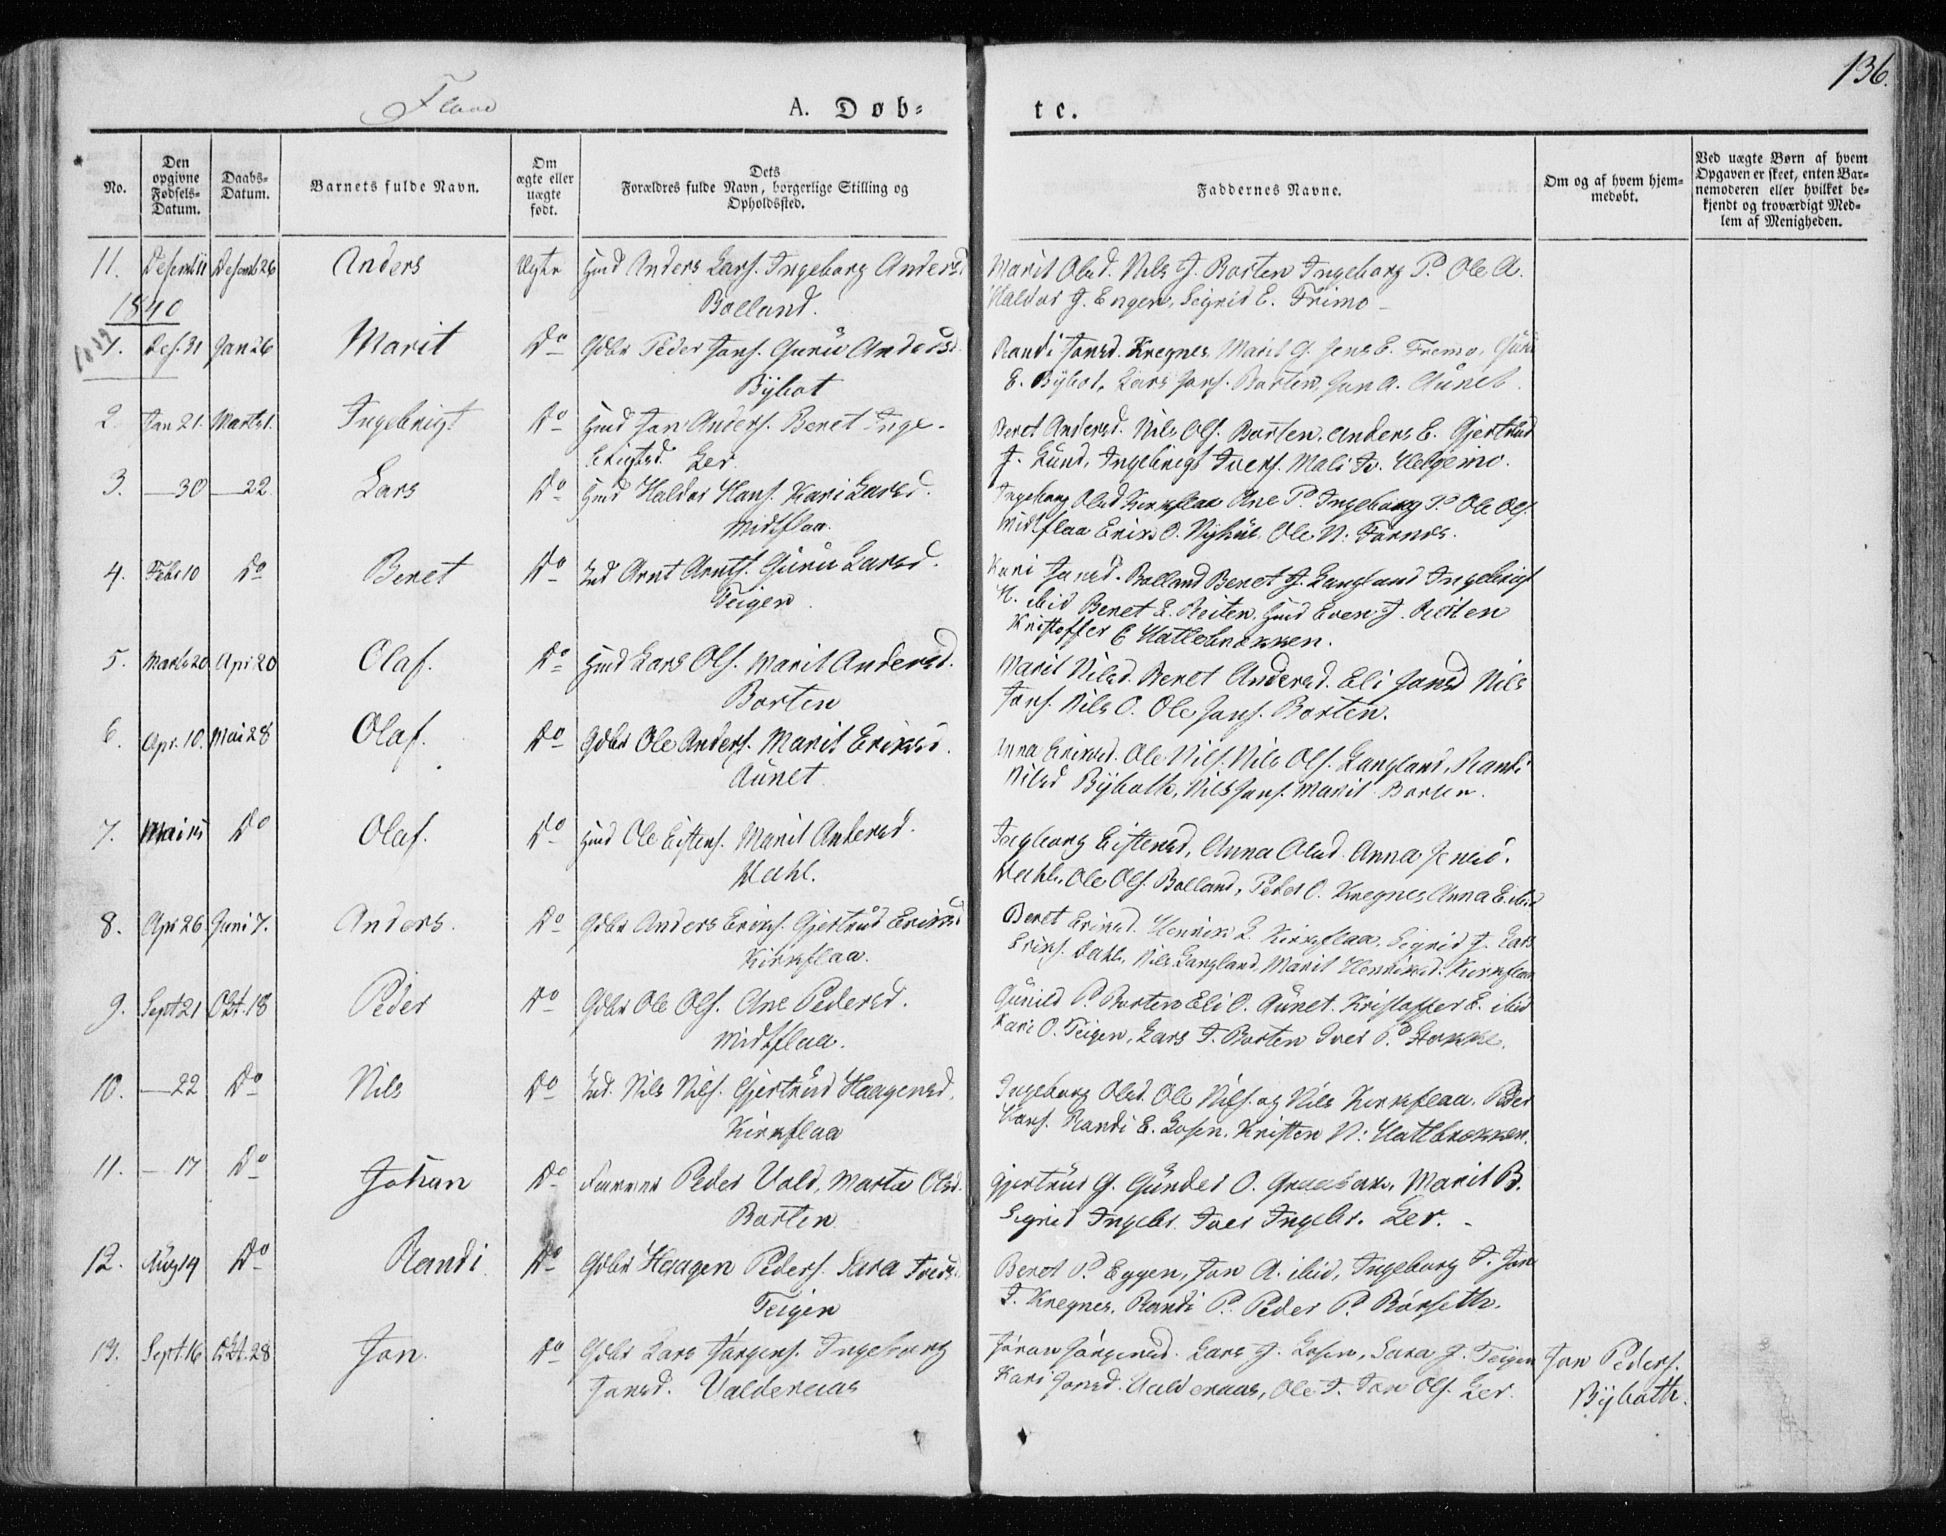 136.
Flaae A. Døb= te.
No.
Den opgivne Fødsels-Datum.
Daabs-Datum.
Barnets fulde Navn.
Om ægte eller uægte født.
Dets Forældres fulde Navn, borgerlige Stilling og Opholdssted.
Faddernes Navne.
Om og af hvem hjemmedøbt.
Ved uægte Børn af hvem Opgaven er skeet, enten Barnemoderen eller hvilket bekjendt og troværdigt Medlem af Menigheden.
11. Desemb 11 Desemb 26 Anders Ægte Hmd Anders Lars. Ingeborg Andersd Marit Olsd. Nils J. Borten Ingeborg P. Ole A.
Bolland. Haldor J. Engen, Sigrid E. Frimo
1840
1839
1. Des. 31 Jan 26 Marit Do Gdbr Peder Jons. Guru Andersd. Randi Jonsd. Kregnes Marit G. Jens E. Fremo,
Bÿbot E. Bÿbot, Lars Jons. Borten, Jon A. Aünet.
2. Jan 21. Marts 1. Ingebrigt Do Hmd Jon Anders. Beret Inge- Beret Andersd. Nils Ols. Borten, Anders E. Gjertrud
brigtsd. Ler. J. Lund, Ingebrigt Ivers. Mali Iv. Helgemo.
3. — 30 — 22 Lars Do Hmd Haldor Hans. Kari Larsd. Ingeborg Olsd Kirkflaa Ane P. Ingeborg P. Ole Ols.
Midtflaa. Midtflaa Erik O. Nÿhus, Ole N. Fornes.
4. Febr 10 Do Beret Do Ind Arnt Arnts. Guru Larsd. Kari Jonsd. Bolland Beret J. Langland Ingebrigt
Teigen. N. ibid Beret E. Reiten, Hmd Even J. Reiten
Kristoffer E Hatlebrekken.
5. Marts 20 Apr 20 Olaf. Do Hmd Lars Ols. Marit Andersd. Marit Nilsd. Beret Andersd. Eli Jonsd Nils
Borten Jons. Nils O. Ole Jons. Borten.
6. Apr. 10. Mai 28 Olaf. Do Gdbr Ole Anders. Marit Eriksd. Anna Eriksd. Ole Nils. Nils Ols. Langland, Randi
Aünet Nilsd Bÿboth, Nils Jons. Marit Borten.
7. Mai Do Olaf. Do Hmd Ole Eistens. Marit Andersd. Ingeborg Eistensd, Anna Olsd. Anna Jensd.
Dahl. Dahl, Ole Ols. Bolland, Peder O. Kregnes Anna E. ibid
8. Apr 26 Juni 7. Anders. Do Gdbr Anders Eriks. Gjertrud Eriksd Beret Eriksd. Henrik L. Kirkflaa, Sigrid J. Lars
Kirkflaa. Eriks. Dahl, Nils Langland, Marit Henriksd. Kirkflaa
9. Sept 21 Okt. 18 Peder Do Gdbr Ole Ols. Ane Pedersd. Gunild P. Borten Eli O. Aünet. Kristoffer E. ibid
Midtflaa. Kari O. Teigen, Lars J. Borten Iver P. Hokke.
10. — 22 Do Nils Do Ind. Nils Nils. Gjertrud Haagensd. Ingeborg Olsd. Ole Nils. og Nils Kirkflaa. Peder
Kirkflaa Hans. Randi E. Losen. Kristen N. Hatlbrekken.
11. — 17 Do Johan Do Peder Vold, Marta Olsd. Gjertrud G. Gunder O. Graabak, Marit B.
Borten Sigrid Ingebr. Iver Ingebr. Ler. -
12. Aug 19 Do Randi. Do Gdbr Haagen Peders. Sara Iversd. Beret P. Eggen, Jon A. ibid, Ingeborg J. Jon
Teigen J. Kregnes. Randi P. Peder P. Rørseth.
13. Sept. 16 Okt. 28 Jon. Do Gdbr Lars Jørgens. Ingeborg Jøran Jørgensd. Lars J. Losen, Sara J. Teigen Jon Peders.
Jonsd. Valderaas Kari Jonsd. Valderaas, Ole J. Jon Ols. Ler. Bÿboth.